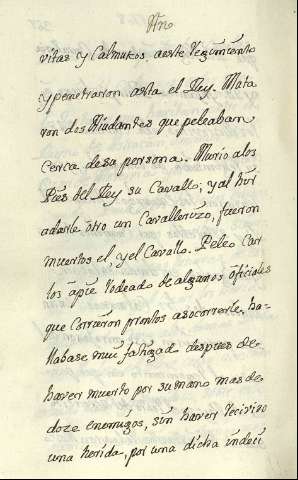 Año
vitas y Calmukos aeste Regimiento
y penetraron asta el Rey. Mata
ron dos Aiudantes que peleaban
cerca desu persona. Murio alos
Pies del Rey su Cavallo; y al
adarle otro un Cavallerizo, fueron
muertos el, y el Cavallo. Peleo Car
los apie rodeado de algunos oficiales
que corrieron prontos asocorrerle, ha-
llabase mui fatigado despues de
haver muerto por su mano mas de
doze enemigos, sin haver recivido
una herida, por una dicha indeci